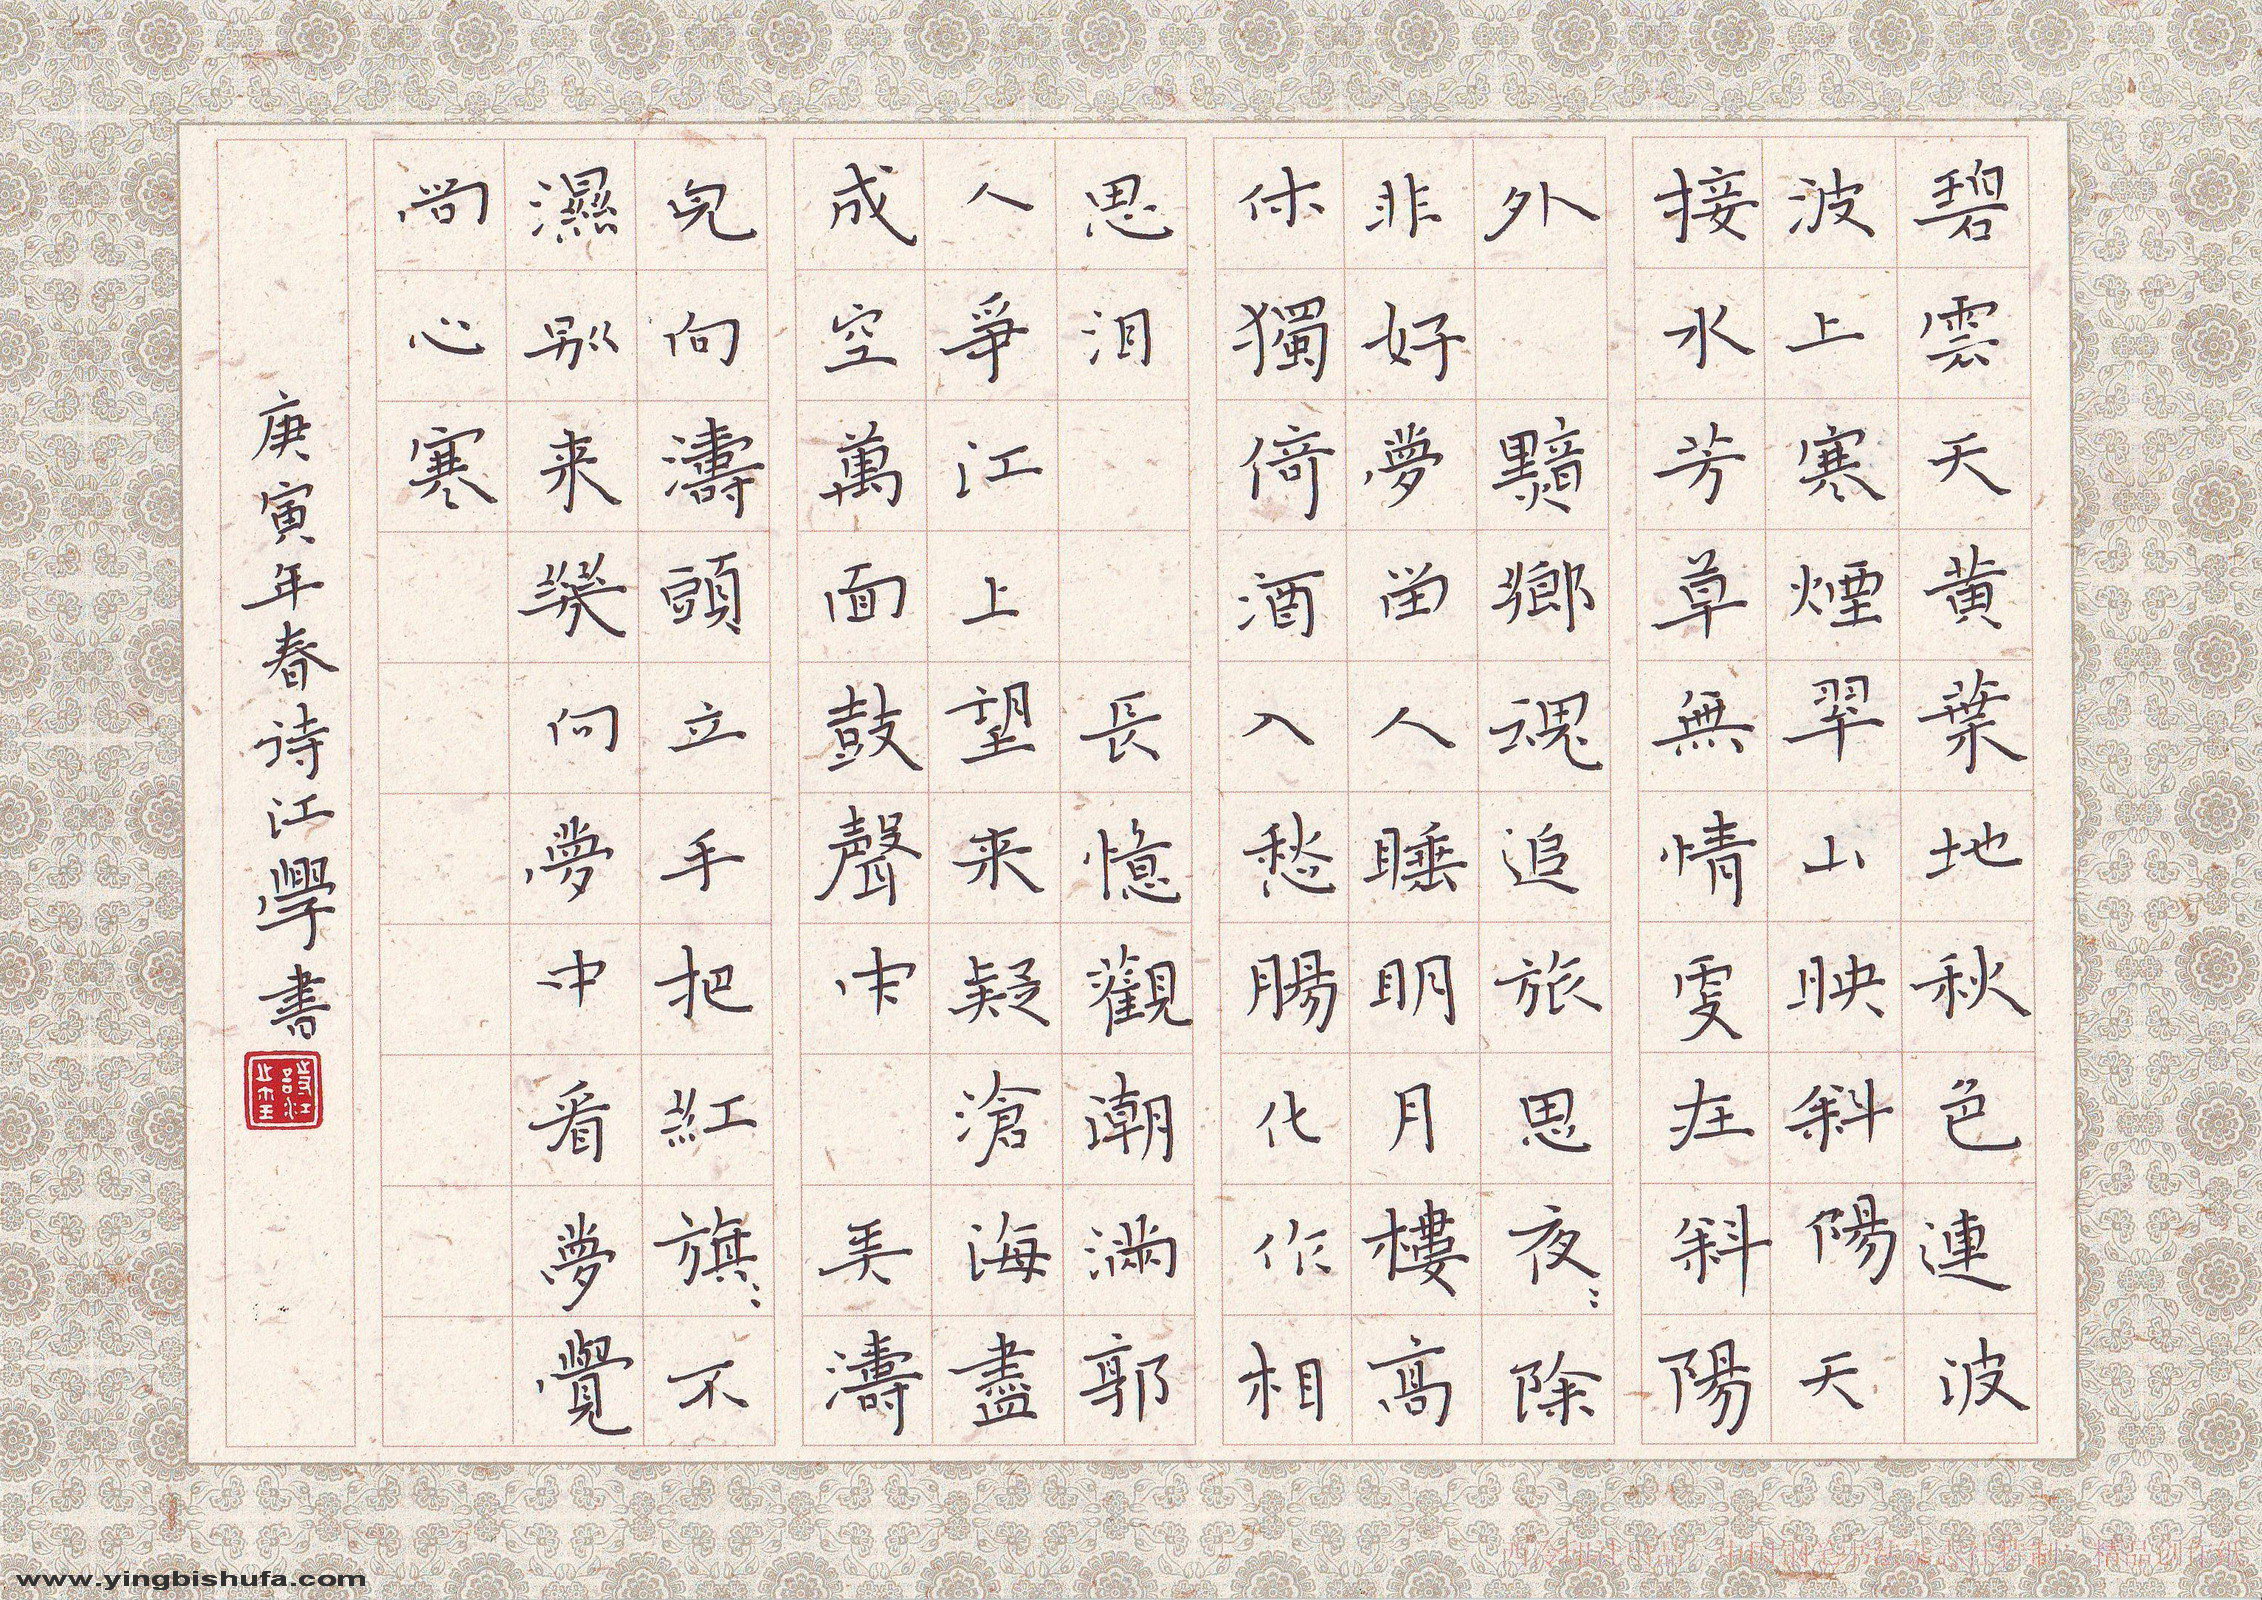 碧雲天黃葉地秋色連波
波上寒煙翠山映斜陽天
接水芳草無情更在斜陽
外 黯鄉魂追旅思夜:除
非好夢留人睡明月樓高
休獨倚酒入愁腸化作相
思泪 長憶觀潮滿郭
人爭江上望来疑滄海盡
成空萬面鼓聲中 弄濤
兒向濤頭立手把紅旗:不
濕別来幾向夢中看夢覺
尚心寒
庚寅年春诗江學書
www.yingbishufa.com